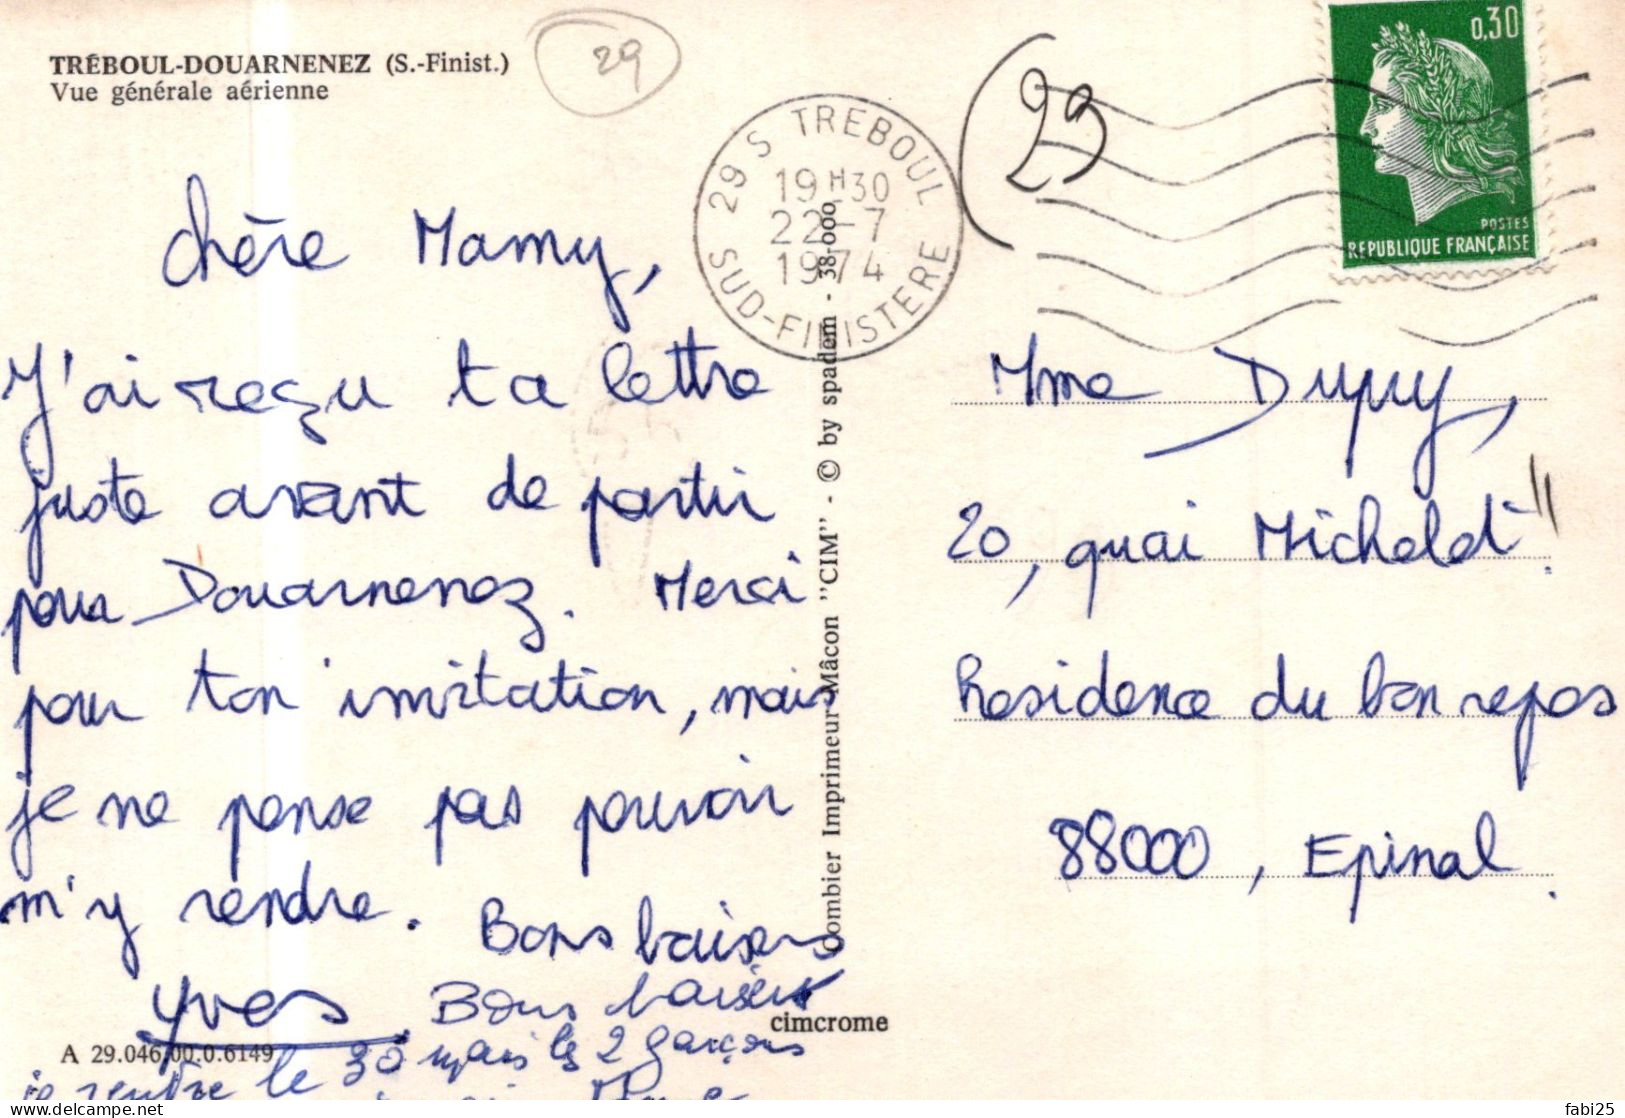 TRÉBOUL-DOUARNENEZ (S.-Finist.)
Vue générale aérienne
29
29 S TREBOUL
19 H30
22-7
1974
SUD-FINISTERE
(29
0,30
POSTES
REPUBLIQUE FRANÇAISE
chère Mamy,
J'ai reçu ta lettre
juste avant de partir
pour Douarnenez. Merci
pour ton invitation, mais
je ne pense pas pouvoir
m'y rendre. Bons baisers
Yves
Bons baisers
je rentre le 30 mais les 2 garçons
Mme Dupuy,
20, quai Michelet
Residence du bon repos
88000, Epinal.
Combier Imprimeur Mâcon "CIM" - © by spadem - 38-000
cimcrome
A 29.046.00.0.6149
delcampe.net
fabi25